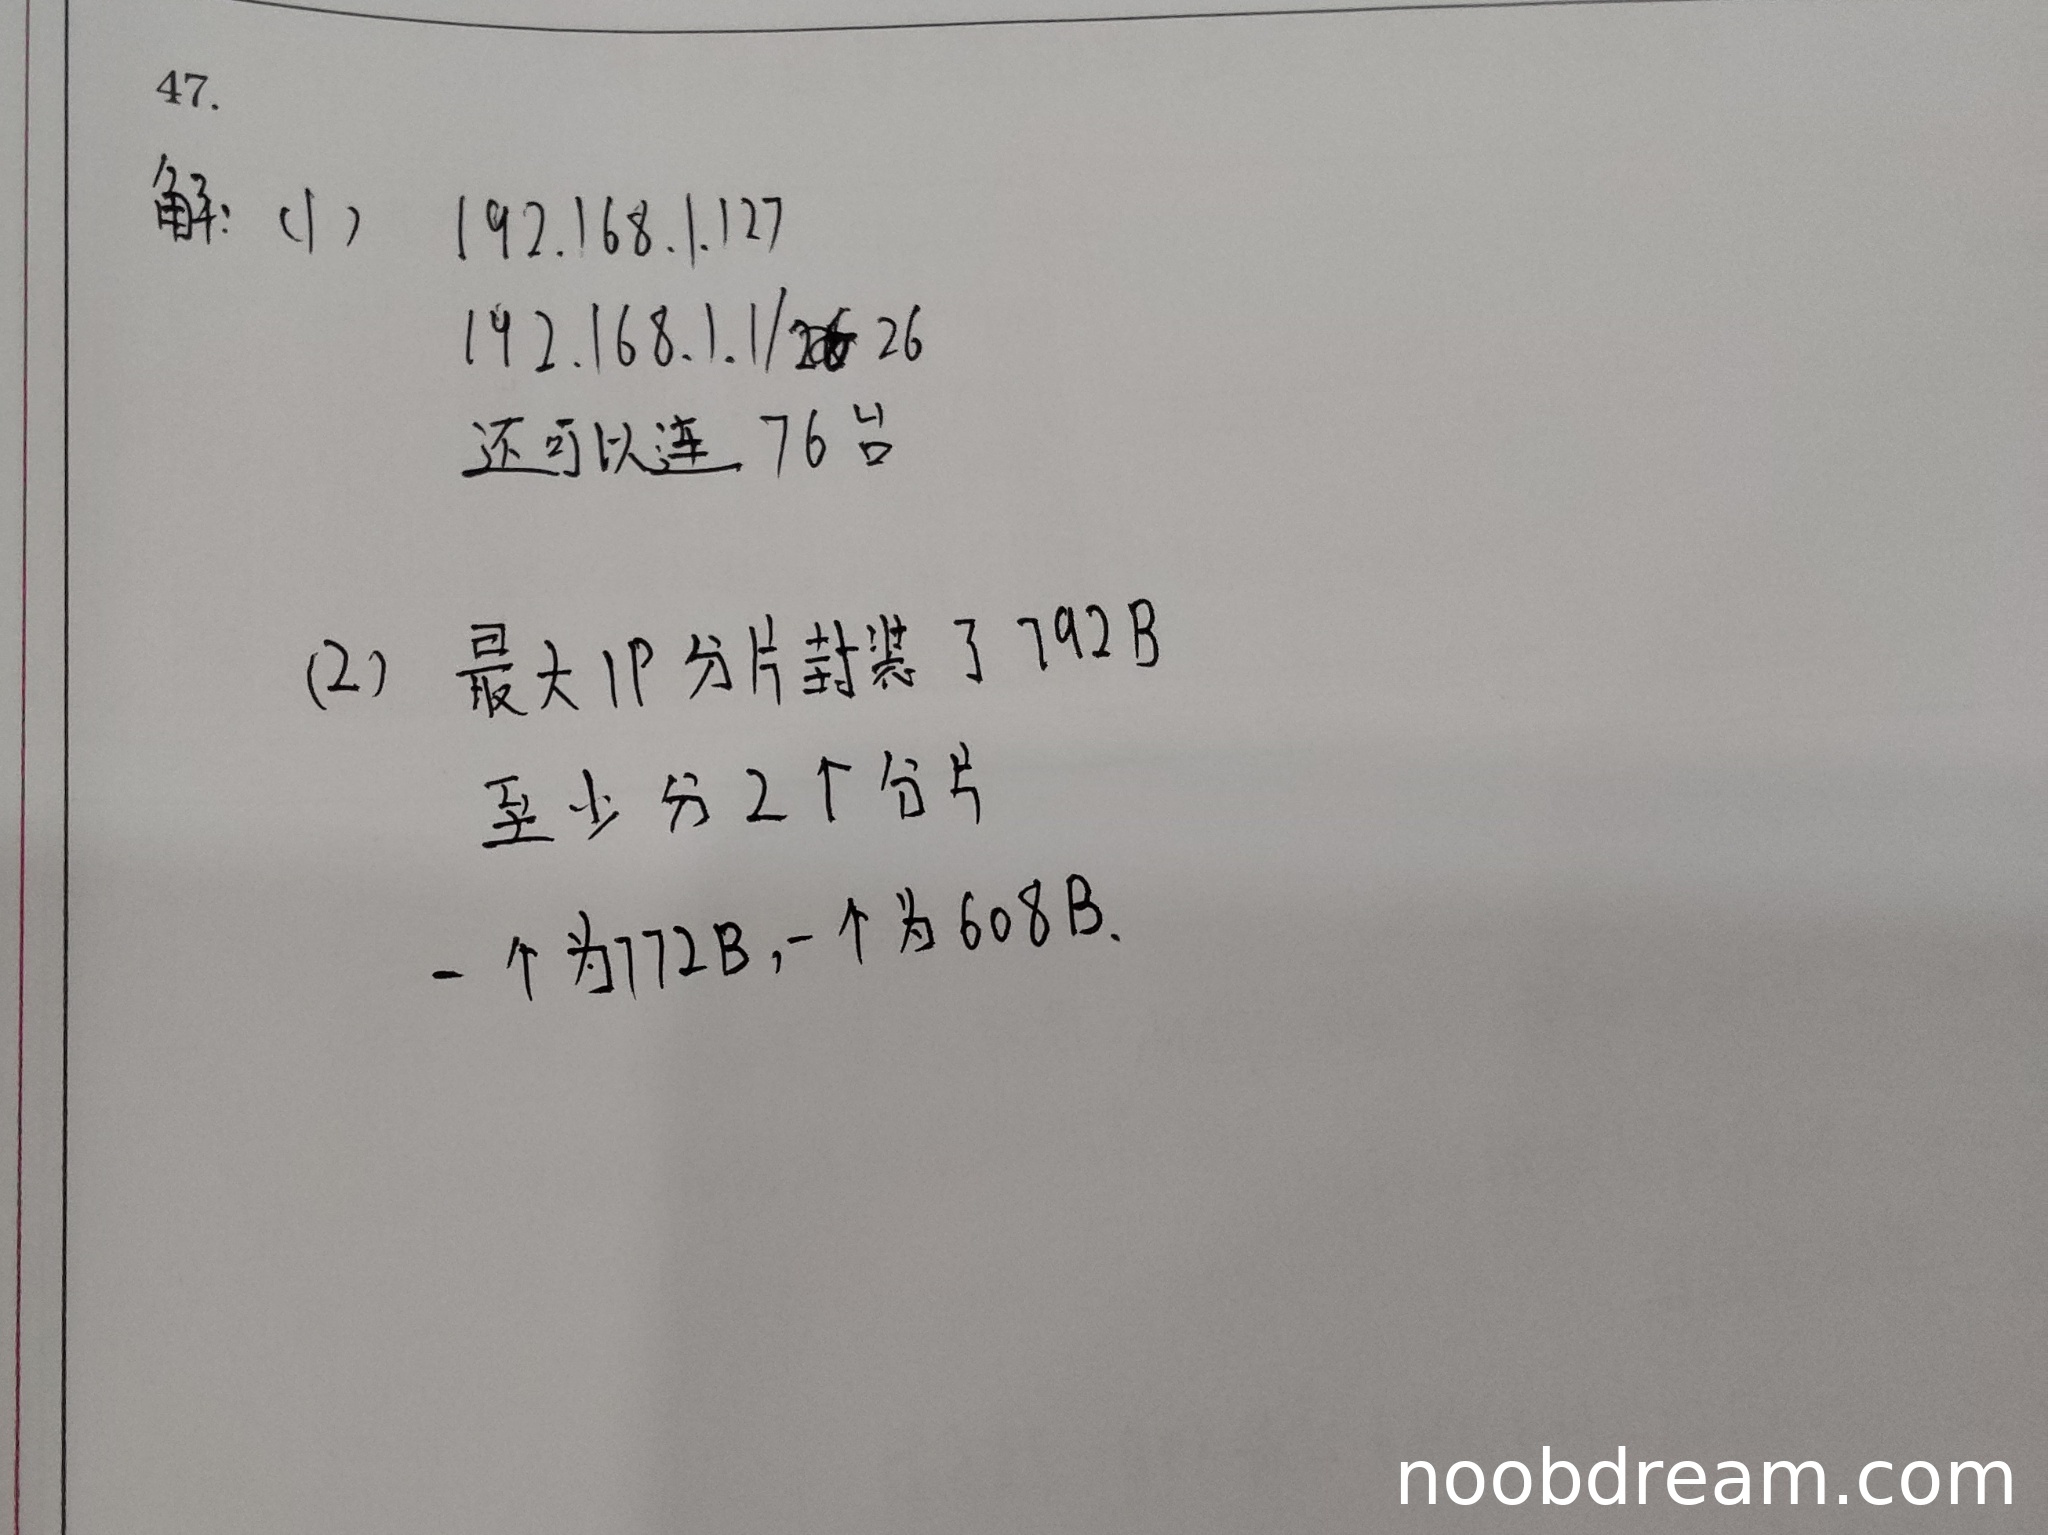 47.
解:(1) 192.168.1.127
192.168.1.1/26
还可以连 76台
(2) 最大IP分片封装了792B
至少分2个分片
一个为772B,一个为608B.
noobdream.com